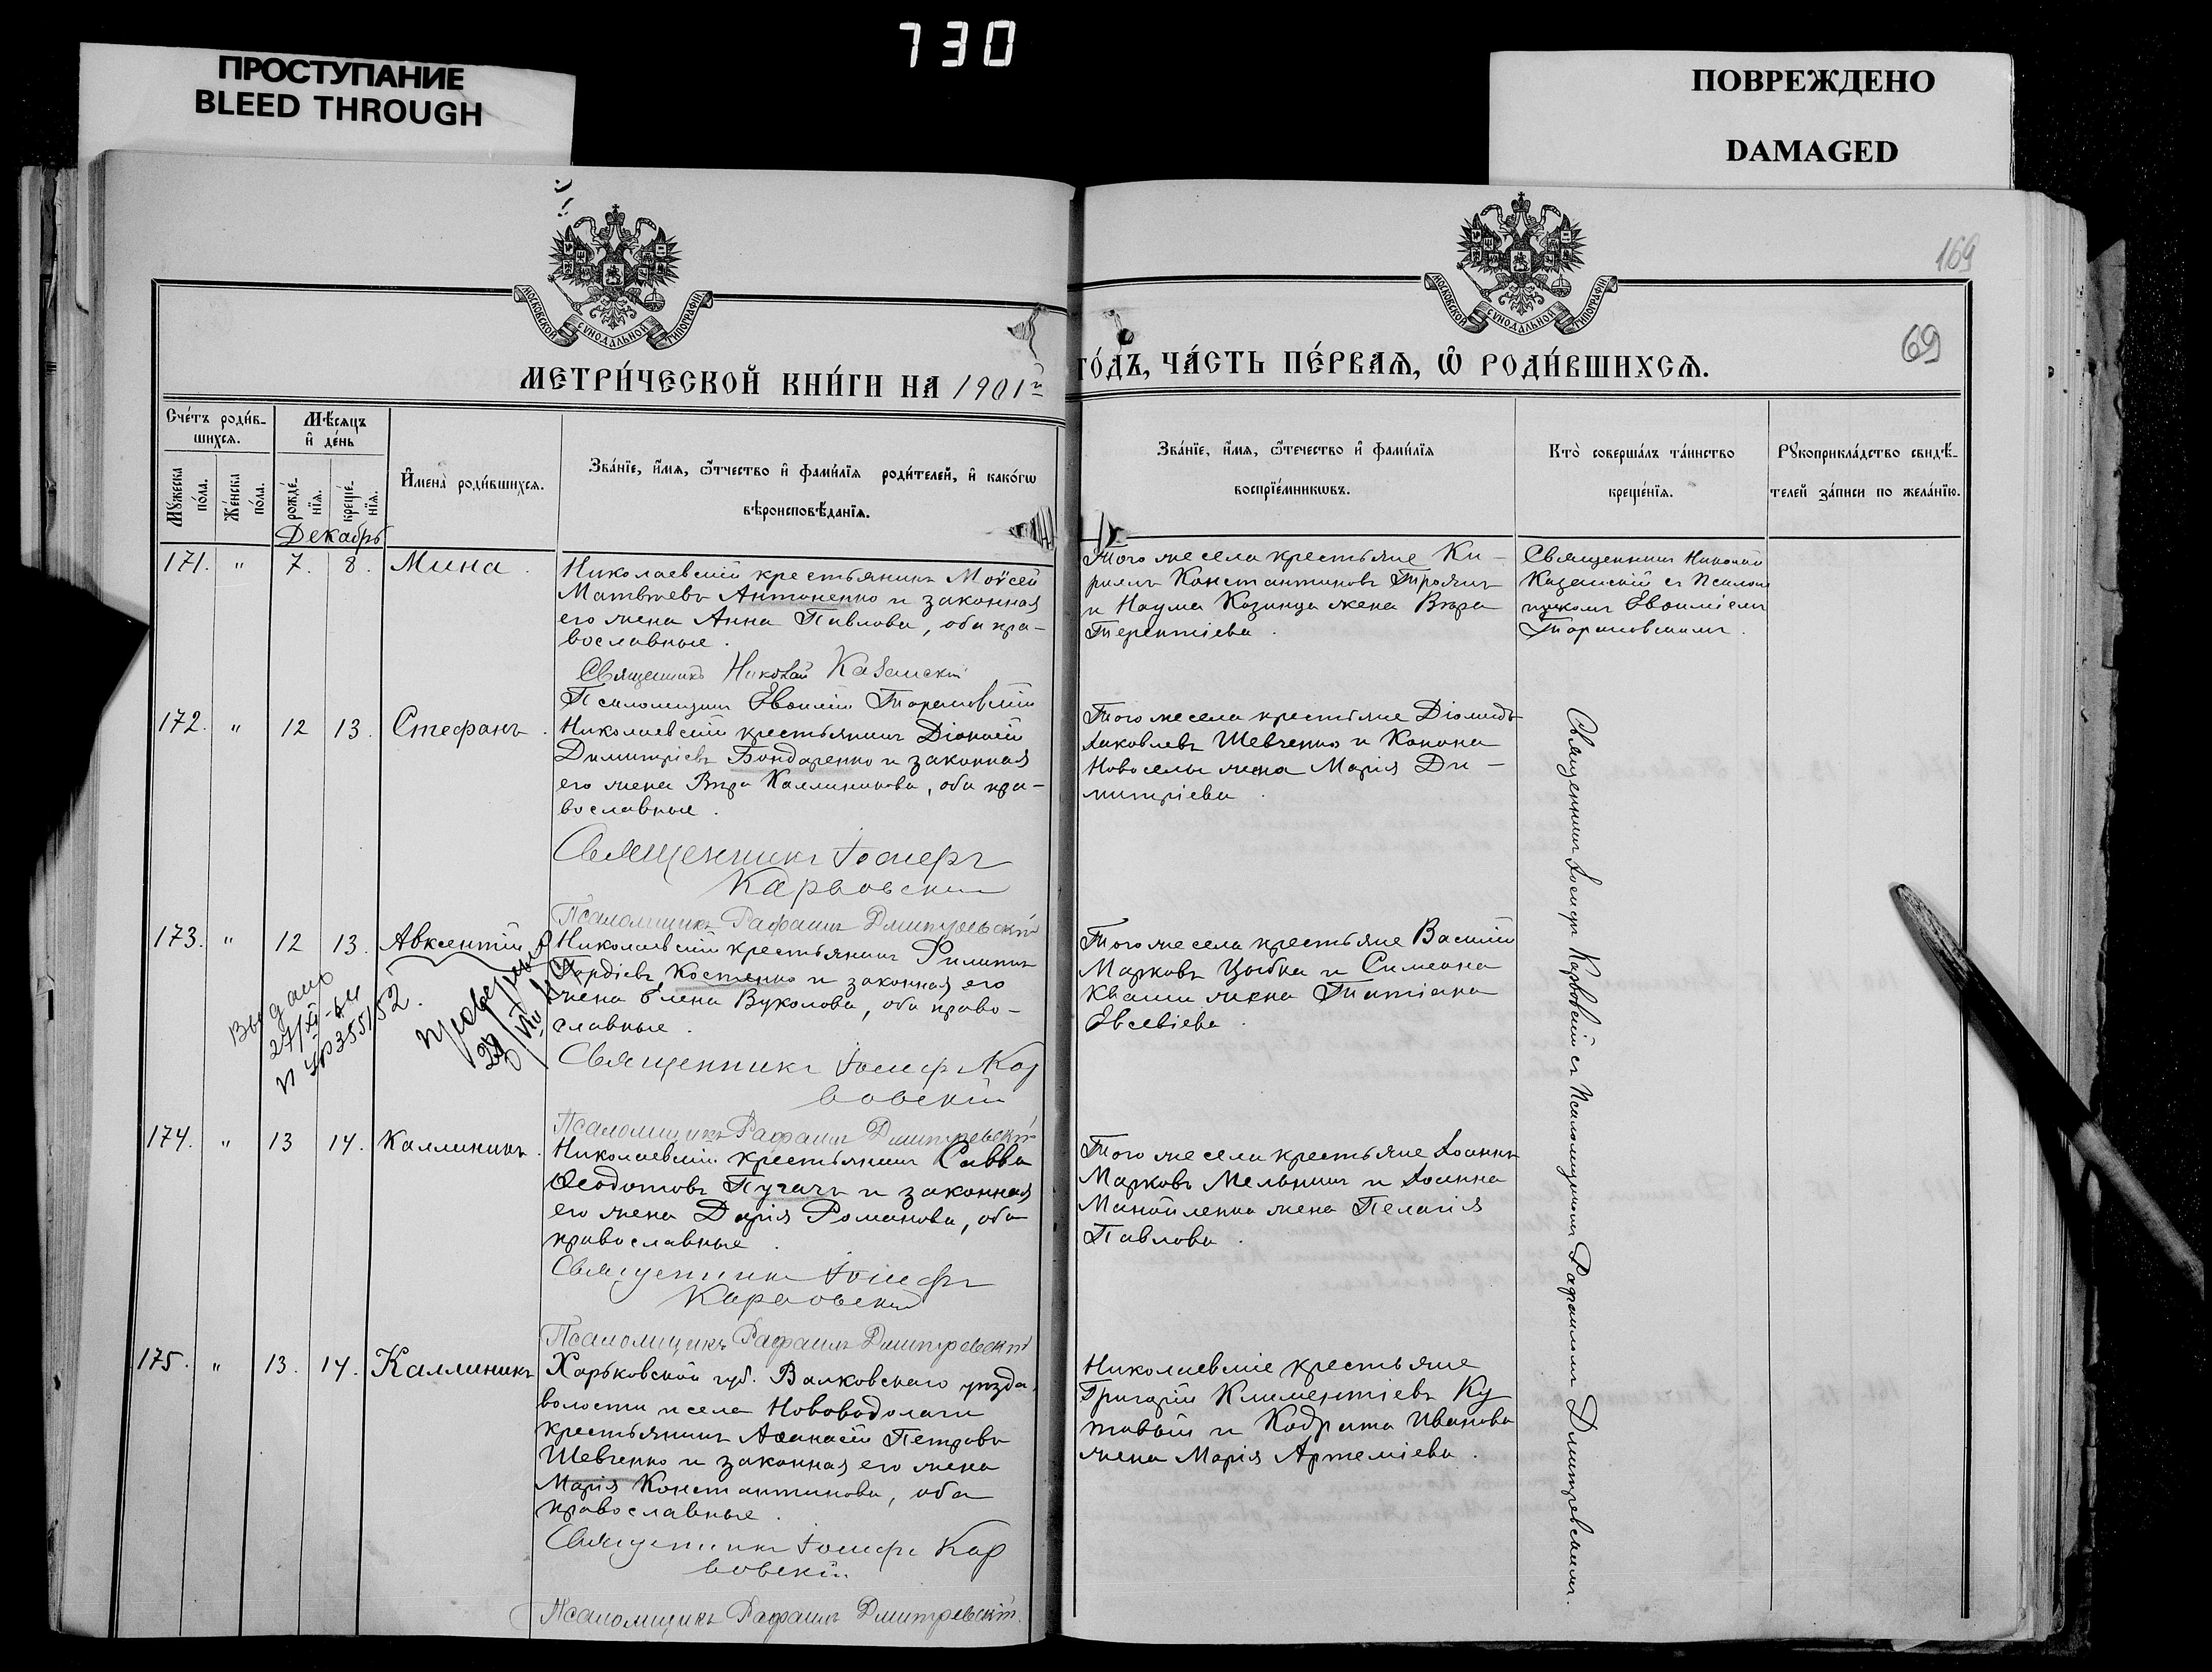 730
ПРОСТУПАНИЕ
BLEED THROUGH
ПОВРЕЖДЕНО
DAMAGED
169
69
МОСКОВСКОЙ СѴНОДАЛЬНОЙ ТИПОГРАФІИ
МОСКОВСКОЙ СѴНОДАЛЬНОЙ ТИПОГРАФІИ
МЕТРИ́ЧЕСКОЙ КНИ́ГИ НА 1901й
ГО́ДЪ, ЧА́СТЬ ПЕ́РВАѦ, Ѡ҆ РОДИ́ВШИХСѦ.
Сче́тъ роди́в-
шихсѧ.
Мѣ́сѧцъ
и҆ де́нь
Мꙋ́жеска
по́ла.
Же́нска
по́ла.
рожде́-
нїѧ.
креще́-
нїѧ.
И҆мена̀ роди́вшихсѧ.
Зва́нїе, и҆́мѧ, ѻ҆́тчество и҆ фами́лїѧ роди́телей, и҆ како́гѡ
вѣроисповѣ́данїѧ.
Зва́нїе, и҆́мѧ, ѻ҆те́чество и҆ фами́лїѧ
воспрїе́мникѡвъ.
Кто̀ соверша́лъ та́инство
креще́нїѧ.
Рꙋкоприкла́дство свидѣ́-
телей за́писи по жела́нїю.
Декабрь
171. " 7. 8. Мина.
Николаевскій крестьянинъ Моѵсей
Матвѣевъ Антоненко и законная
его жена Анна Павлова, оба пра-
вославные.
Священникъ Николай Казанскій
Псаломщикъ Евѳимій Торановскій
Того же села крестьяне Ки-
рилъ Константиновъ Троянъ
и Наума Козинца жена Вѣра
Терентіева.
Священникъ Николай
Казанскій съ Псалом
щикомъ Евѳиміемъ
Торановскимъ.
172. " 12 13. Стефанъ.
Николаевскій крестьянинъ Діонисій
Димитріевъ Бондаренко и законная
его жена Вѣра Каллиникова, оба пра-
вославные.
Священникъ Іосифъ
Карвовскій
Псаломщикъ Рафаилъ Дмитревскій
Того же села крестьяне Діомидъ
Іаковлевъ Шевченко и Конона
Новоселы жена Марія Ди-
митріева.
Священникъ Іосифъ Карвовскій съ Псаломщикомъ Рафаиломъ Дмитревскимъ.
173. " 12 13. Авксентій
Выдано
27/XI-
355152.
Николаевскій крестьянинъ Филиппъ
Гордіевъ Костенко и законная его
жена Елена Вуколова, оба право-
славные.
Священникъ Іосифъ Кар
вовскій
Псаломщикъ Рафаилъ Дмитревскій
Того же села крестьяне Василій
Марковъ Цыбка и Симеона
Кваши жена Татіана
Евсевіева.
174. " 13 14. Каллиникъ.
Николаевскій крестьянинъ Савва
Ѳеодотовъ Пугачъ и законная
его жена Дарія Романова, оба
православные.
Священникъ Іосифъ
Карвовскій
Псаломщикъ Рафаилъ Дмитревскій
Того же села крестьяне Іоаннъ
Марковъ Мельникъ и Іоанна
Манойленка жена Пелагія
Павлова.
175. " 13. 14. Каллиникъ
Харьковской губ. Валковскаго уѣзда,
волости и села Нововодолаги
крестьянинъ Аѳанасій Петровъ
Шевченко и законная его жена
Марія Константинова, оба
православные.
Священникъ Іосифъ Кар
вовскій
Псаломщикъ Рафаилъ Дмитревскій.
Николаевскіе крестьяне
Григорій Климентіевъ Ку
товой и Кодрата Иванова
жена Марія Артеміева.